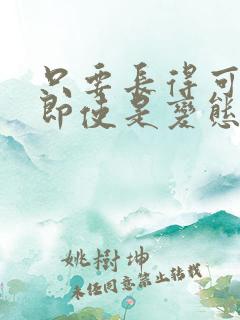 只要長得可
即使是變態
姚樹坤
未任同意禁止轉載